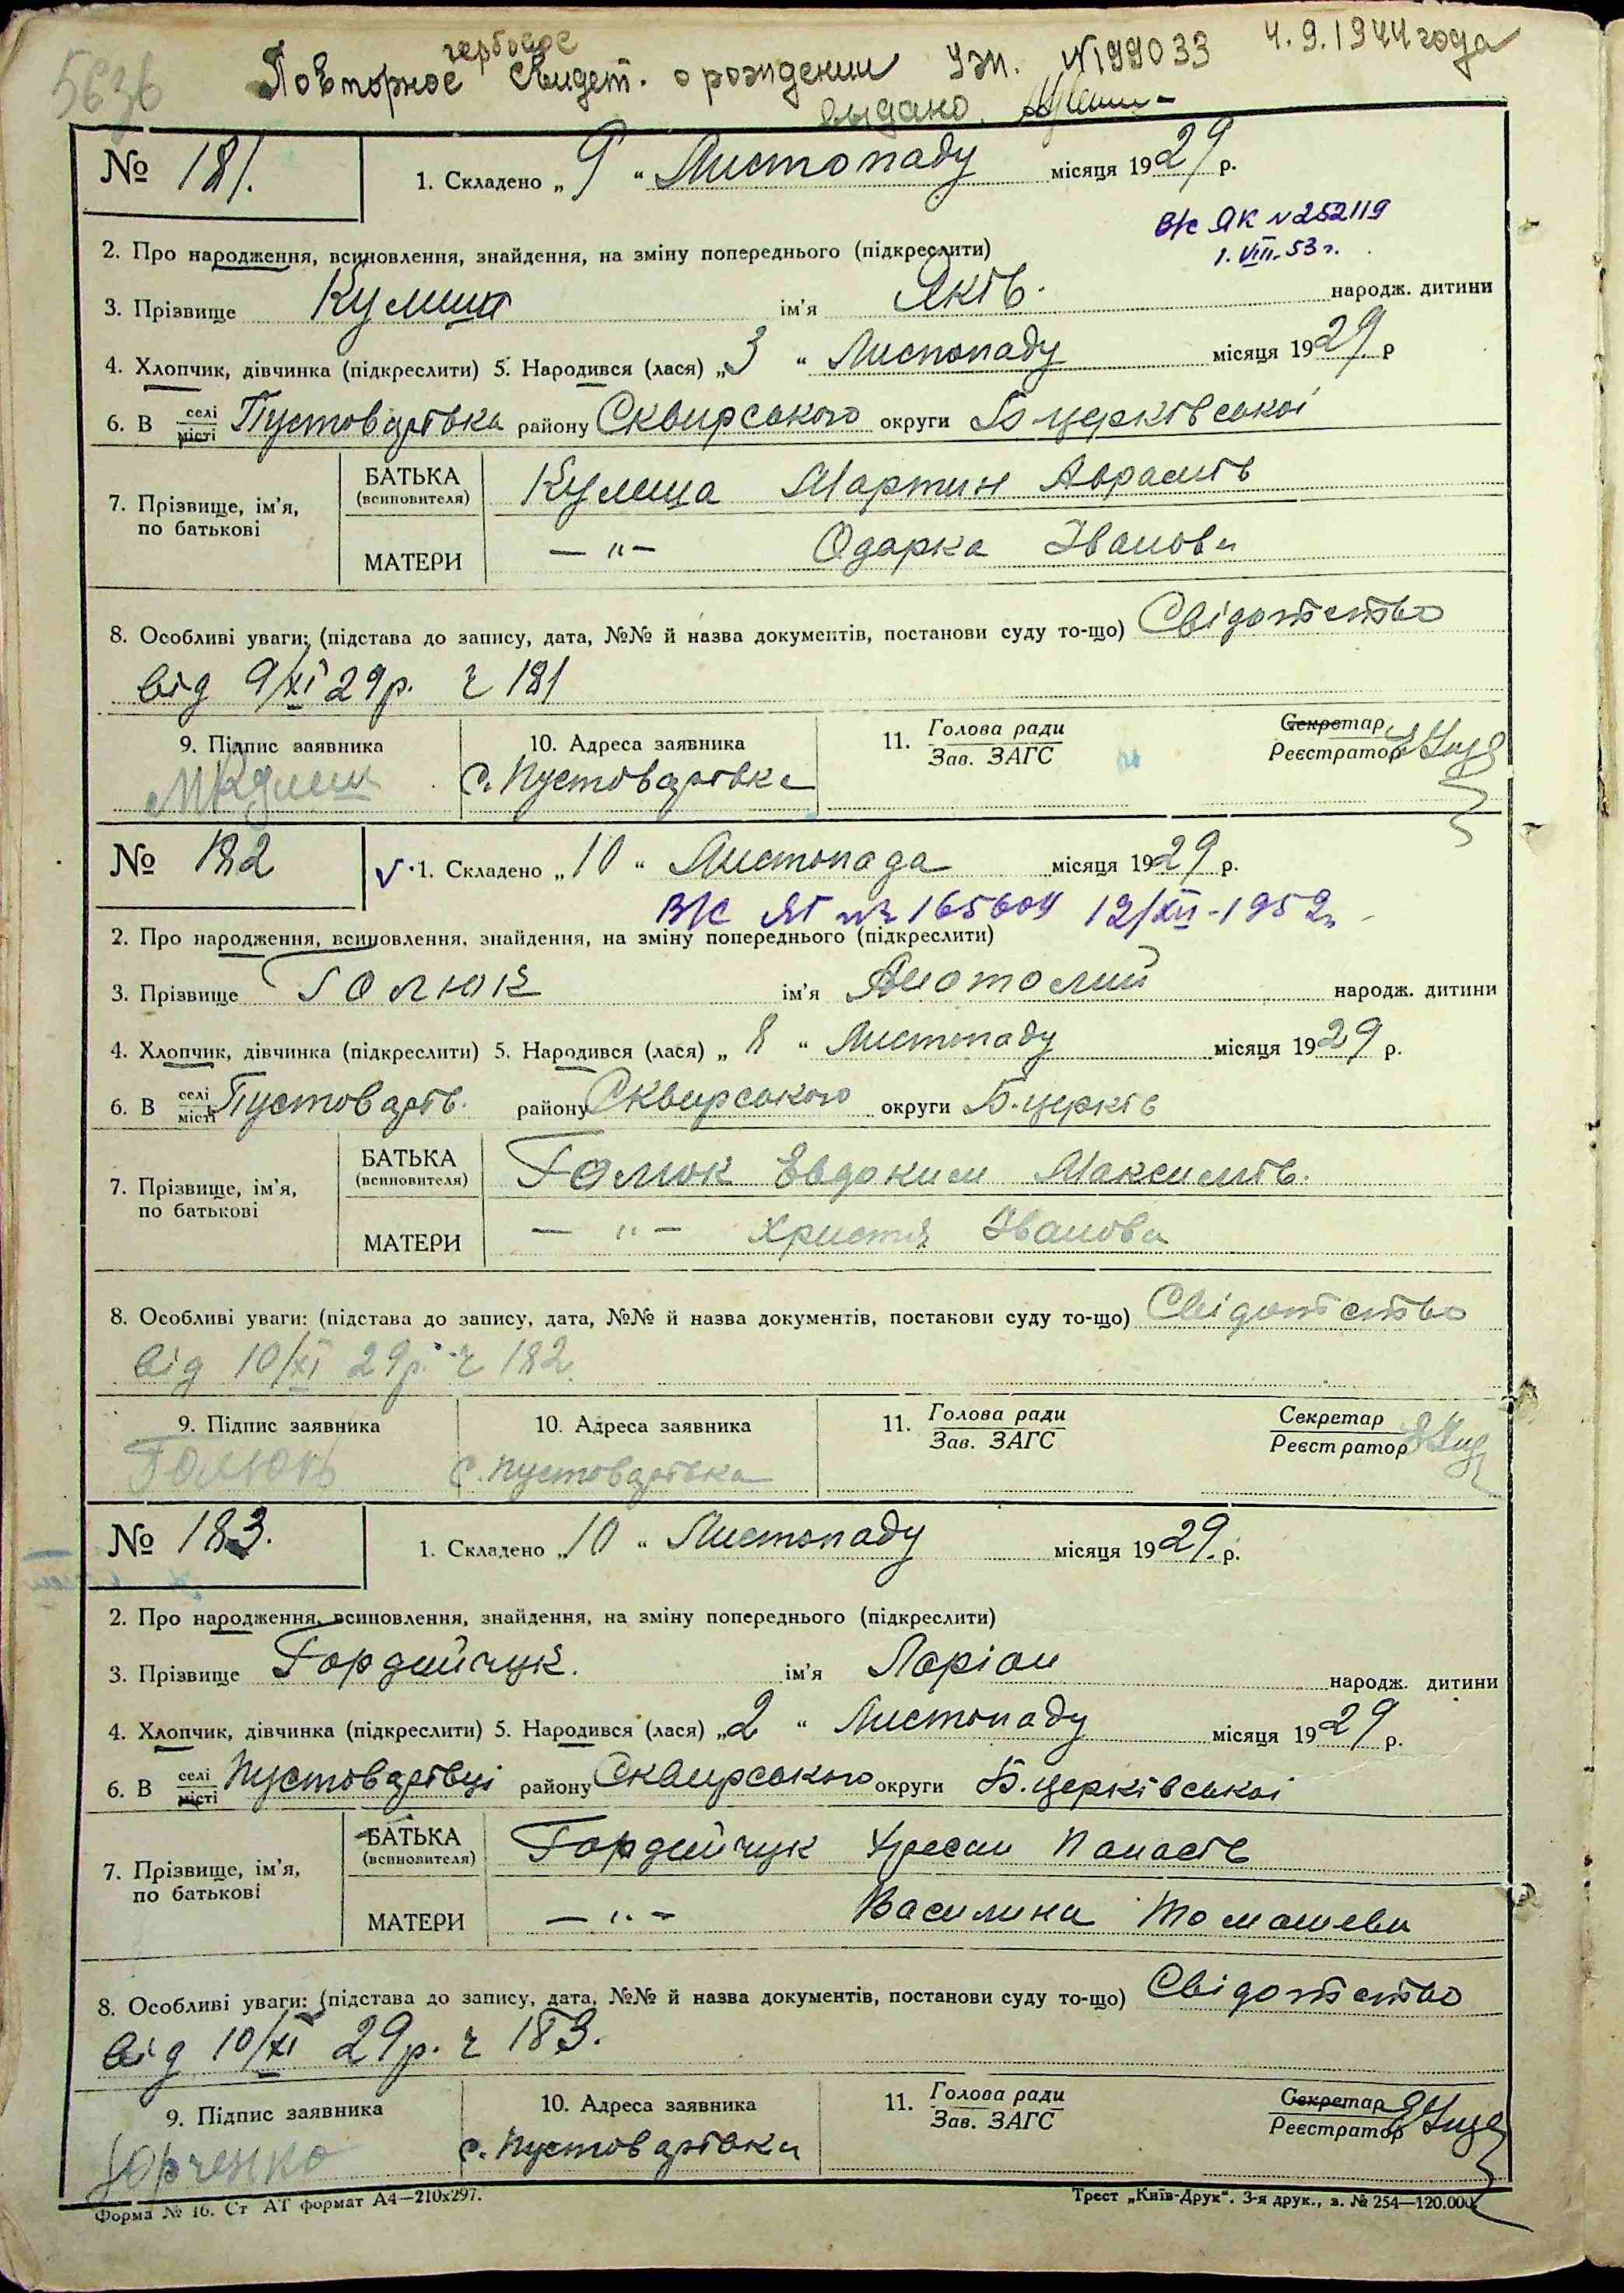 5636
гербовое
Повторное Свидет. о рождении УЖ. №199033 4.9.1944 года
выдано.
№ 181. 1. Складено „ 9 “ Листопаду місяця 1929 р.
В/с ЯК №252119
1.VIII.53 г.
2. Про народження, всиновлення, знайдення, на зміну попереднього (підкреслити)
3. Прізвище Кулиша ім'я Яктв. народж. дитини
4. Хлопчик, дівчинка (підкреслити) 5. Народився (лася) „ 3 “ Листопаду місяця 1929 р
6. В селі місті Пустоварівка району Сквирського округи Б церківської
7. Прізвище, ім'я, по батькові БАТЬКА (всиновителя) Кулиша Мартин Аврамів
МАТЕРИ — „ — Одарка Іванова
8. Особливі уваги: (підстава до запису, дата, №№ й назва документів, постанови суду то-що) Свідотство
від 9/XI 29р. ч 181
9. Підпис заявника 10. Адреса заявника 11. Голова ради Зав. ЗАГС Секретар Реєстратор
с. Пустоварівка
№ 182 √ 1. Складено „ 10 “ Листопада місяця 1929 р.
В/С ЯГ № 165604 12/XII-1952г
2. Про народження, всиновлення, знайдення, на зміну попереднього (підкреслити)
3. Прізвище Голюк ім'я Анотолий народж. дитини
4. Хлопчик, дівчинка (підкреслити) 5. Народився (лася) „ 8 “ Листопаду місяця 1929 р.
6. В селі місті Пустоварів. району Сквирського округи Б.церків
7. Прізвище, ім'я, по батькові БАТЬКА (всиновителя) Голюк Евдоким Максимів.
МАТЕРИ — „ — Христя Іванова
8. Особливі уваги: (підстава до запису, дата, №№ й назва документів, постанови суду то-що) Свідотство
від 10/XI 29р. ч 182.
9. Підпис заявника 10. Адреса заявника 11. Голова ради Зав. ЗАГС Секретар Реєстратор
Голюк с. Пустоварівка
№ 183. 1. Складено „ 10 “ Листопаду місяця 1929. р.
2. Про народження, всиновлення, знайдення, на зміну попереднього (підкреслити)
3. Прізвище Гордийчук. ім'я Ларіон народж. дитини
4. Хлопчик, дівчинка (підкреслити) 5. Народився (лася) „ 2 “ Листопаду місяця 1929 р.
6. В селі місті Пустоварівці району Сквирського округи Б.церківської
7. Прізвище, ім'я, по батькові БАТЬКА (всиновителя) Гордийчук Панасів
МАТЕРИ — „ — Василина Томашева
8. Особливі уваги: (підстава до запису, дата, №№ й назва документів, постанови суду то-що) Свідотство
від 10/XI 29р. ч 183.
9. Підпис заявника 10. Адреса заявника 11. Голова ради Зав. ЗАГС Секретар Реєстратор
с. Пустоварівка
Форма № 16. Ст АТ формат А4—210х297. Трест „Київ-Друк“. 3-я друк., з. № 254—120.000